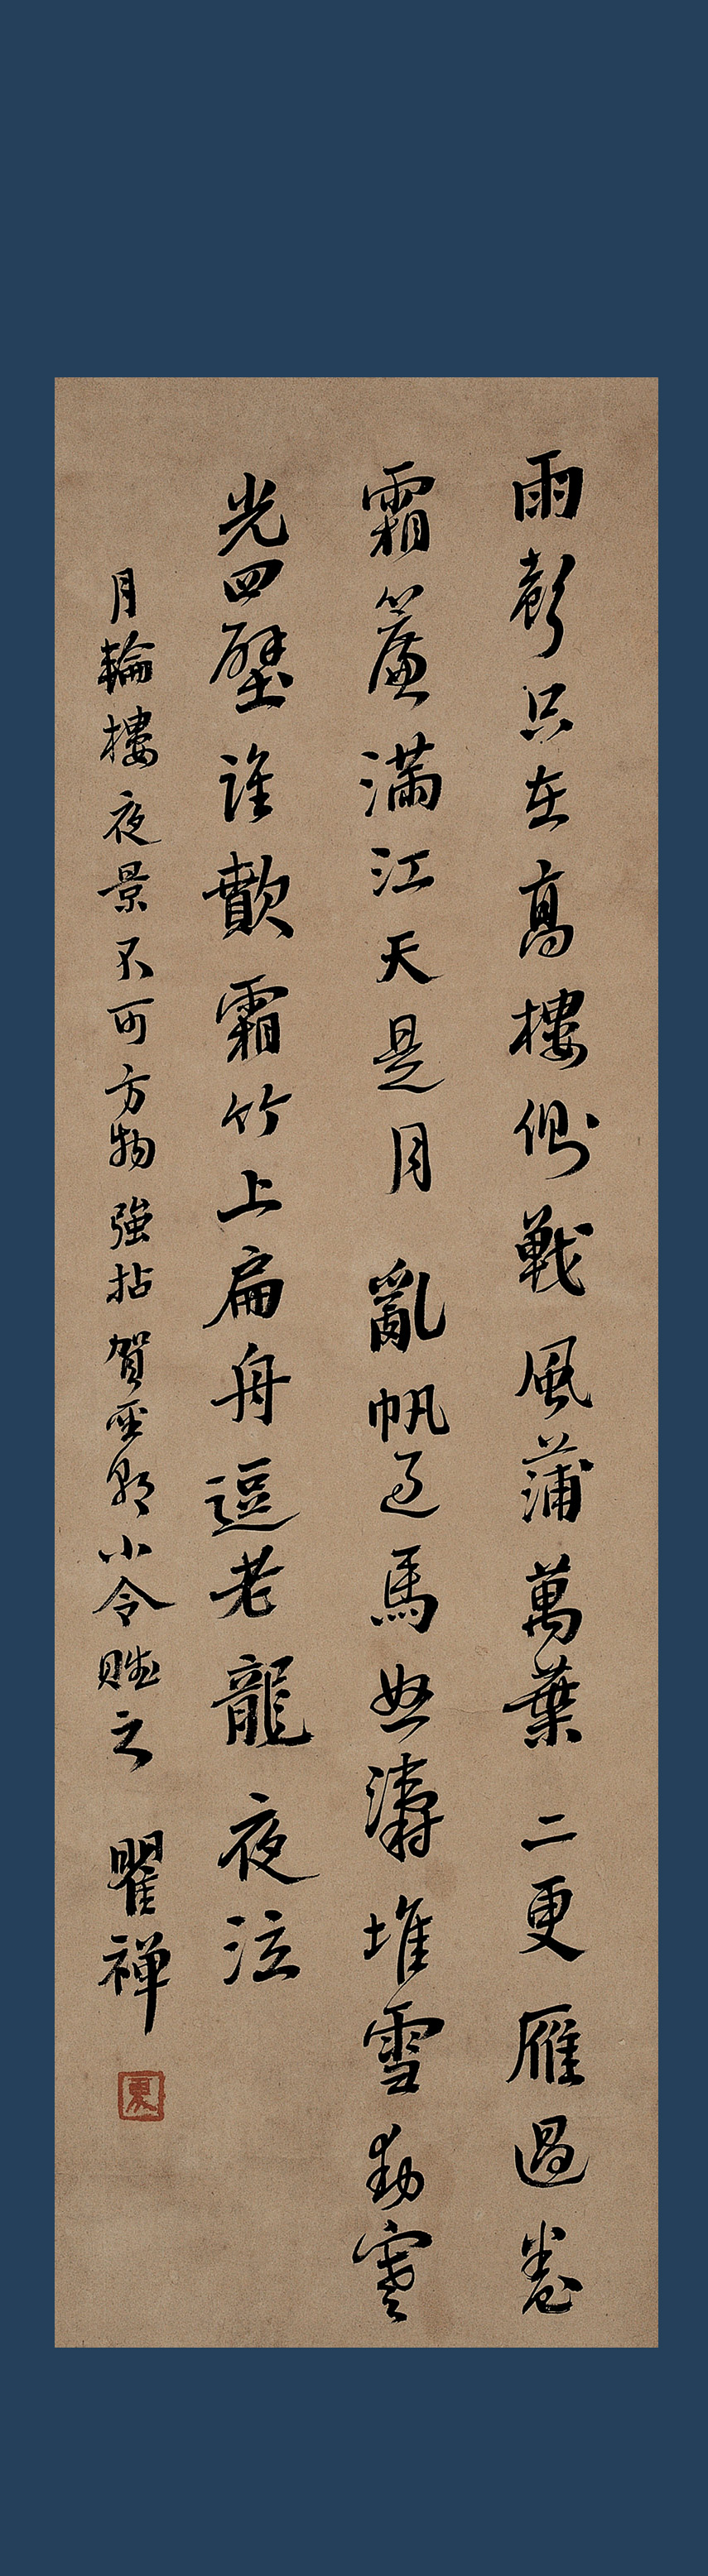 雨聲只在高樓側戰風蒲萬葉 二更雁過卷
霜簾滿江天是月 亂帆過馬怒濤堆雪動寒
光四壁誰歕霜竹上扁舟逗老龍夜泣
月輪樓夜景不可方物強拈賀聖朝小令賦之 瞿禪
夏